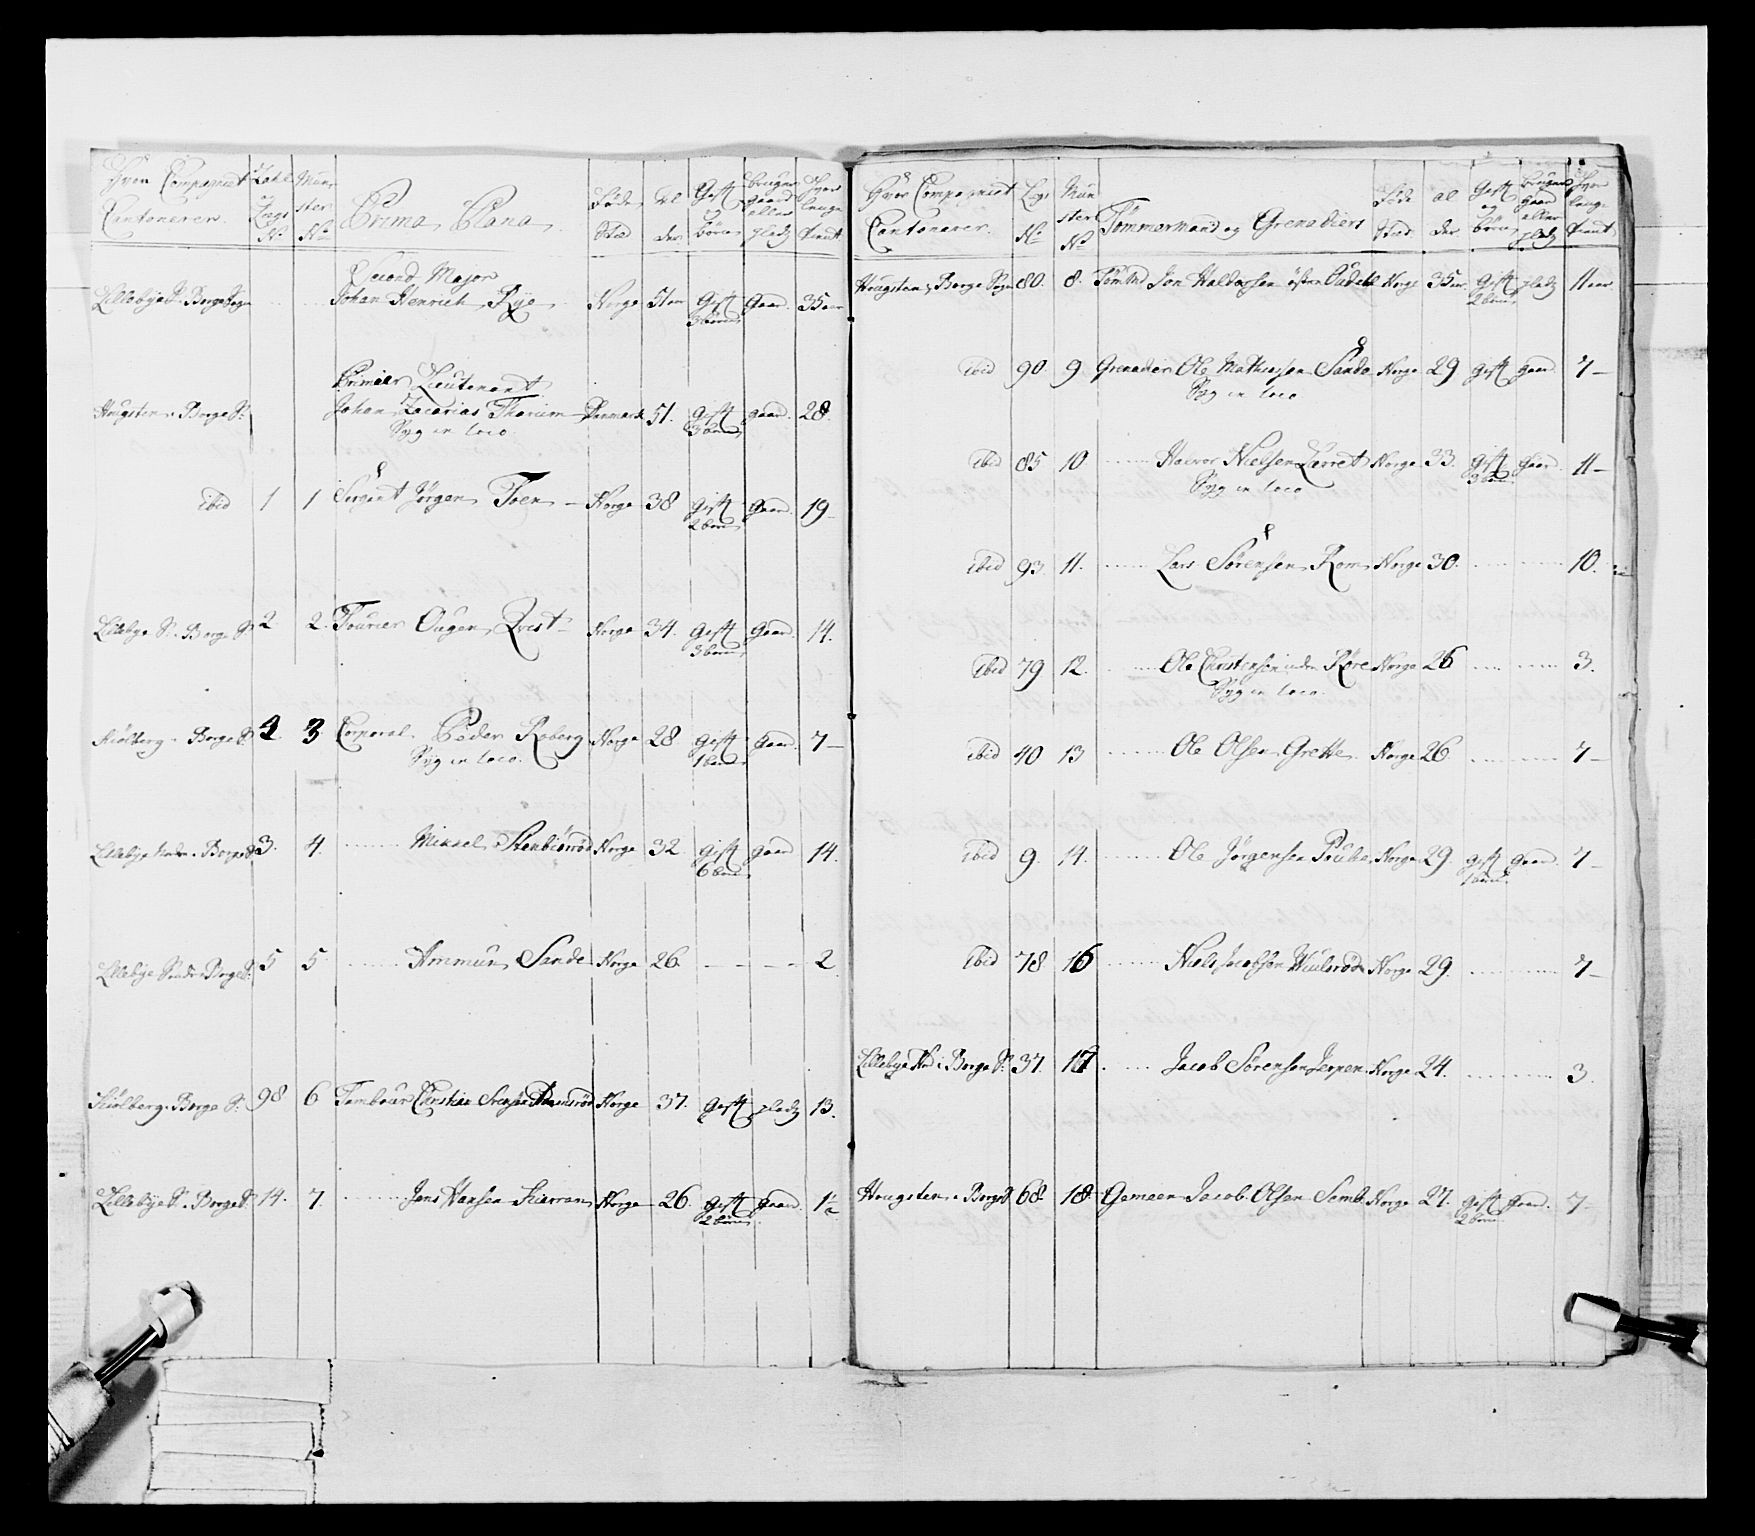 Hvor Compagniet Cantonerer. | Zahl Laugs No | Mun ster No | Prima Plana | Føde Stæd | Al der | Gift og børn | bruger gaard eller pladz | Hvor lenge tient
Second Major
Lillebye S: Borge Sogn Johan Henrich Rye Norge 51 aar Gift gaard 35 aar
3 børn
Primier Lieutenant
Hougsten i Borge S: Johan Zacarias Thorium Denmark 51. gift gaard. 28.
Syg in loco. 3 børn
ibid 1 1 Sergint Jörgen Foen Norge 38 gift gaard. 19
2 børn
Lillebye S. i Borge S: 2 2. Fourier Ougen Qvist Norge 34. Gift Gaard. 14.
3 børn
Kiölberg i Borge S: 4 3 Corporal Peder Roberg Norge 28 gift gaard. 7
Syg in loco. 1 barn
Lillebye i Borge S 3. 4. Mikkel Stenbiörröd Norge 32 gift gaard 14.
6 børn
Lillebye Søndre i Borge S: 5 5 Ammun Sande Norge 26. 2
Kiölberg i Borge S: 98 6 Tambour Christian Norge 37. gift pladz 13.
Lillebye S. i Borge S: 14. 7. Jens Hansen Norge 26. gift gaard. 1½
2 børn
Hvor Compagniet Cantonerer. | Laugs No | Mun ster No | Tömmermand og Grenadiers | Føde Stæd | al der. | Gift og børn | bruger gaard eller pladz | Hvor lenge tient
Hougsten i Borge Sogn 80. 8. Jon Halvorsen östre Norge 35 aar. gift pladz 11 aar.
2 børn
ibid 90 9 Grenader Ole Mathiesen Sande Norge 29 gift gaard. 7
Syg in loco
ibid 85 10 Halvor Nielsen Norge 33. gift gaard. 11
Syg in loco 3 børn
ibid 93. 11. Lars Sörensen Rom Norge 30. 10.
ibid 79 12. Ole Christensen Norge 26 3.
Syg in loco.
ibid 40 13 Ole Olsen Grette Norge 26 7
ibid 9. 14. Ole Jörgensen Norge 29. gift gaard. 7
1 barn
ibid 78 16 Niels Jacobsen Norge 29. 7
Lillebye i Borge S: 37. 17. Jacob Sörensen Norge 24. 3.
Hougsten i Borge S 68. 18 Gemeen Jacob Olsen Semb Norge 27. gift gaard. 7
2 børn